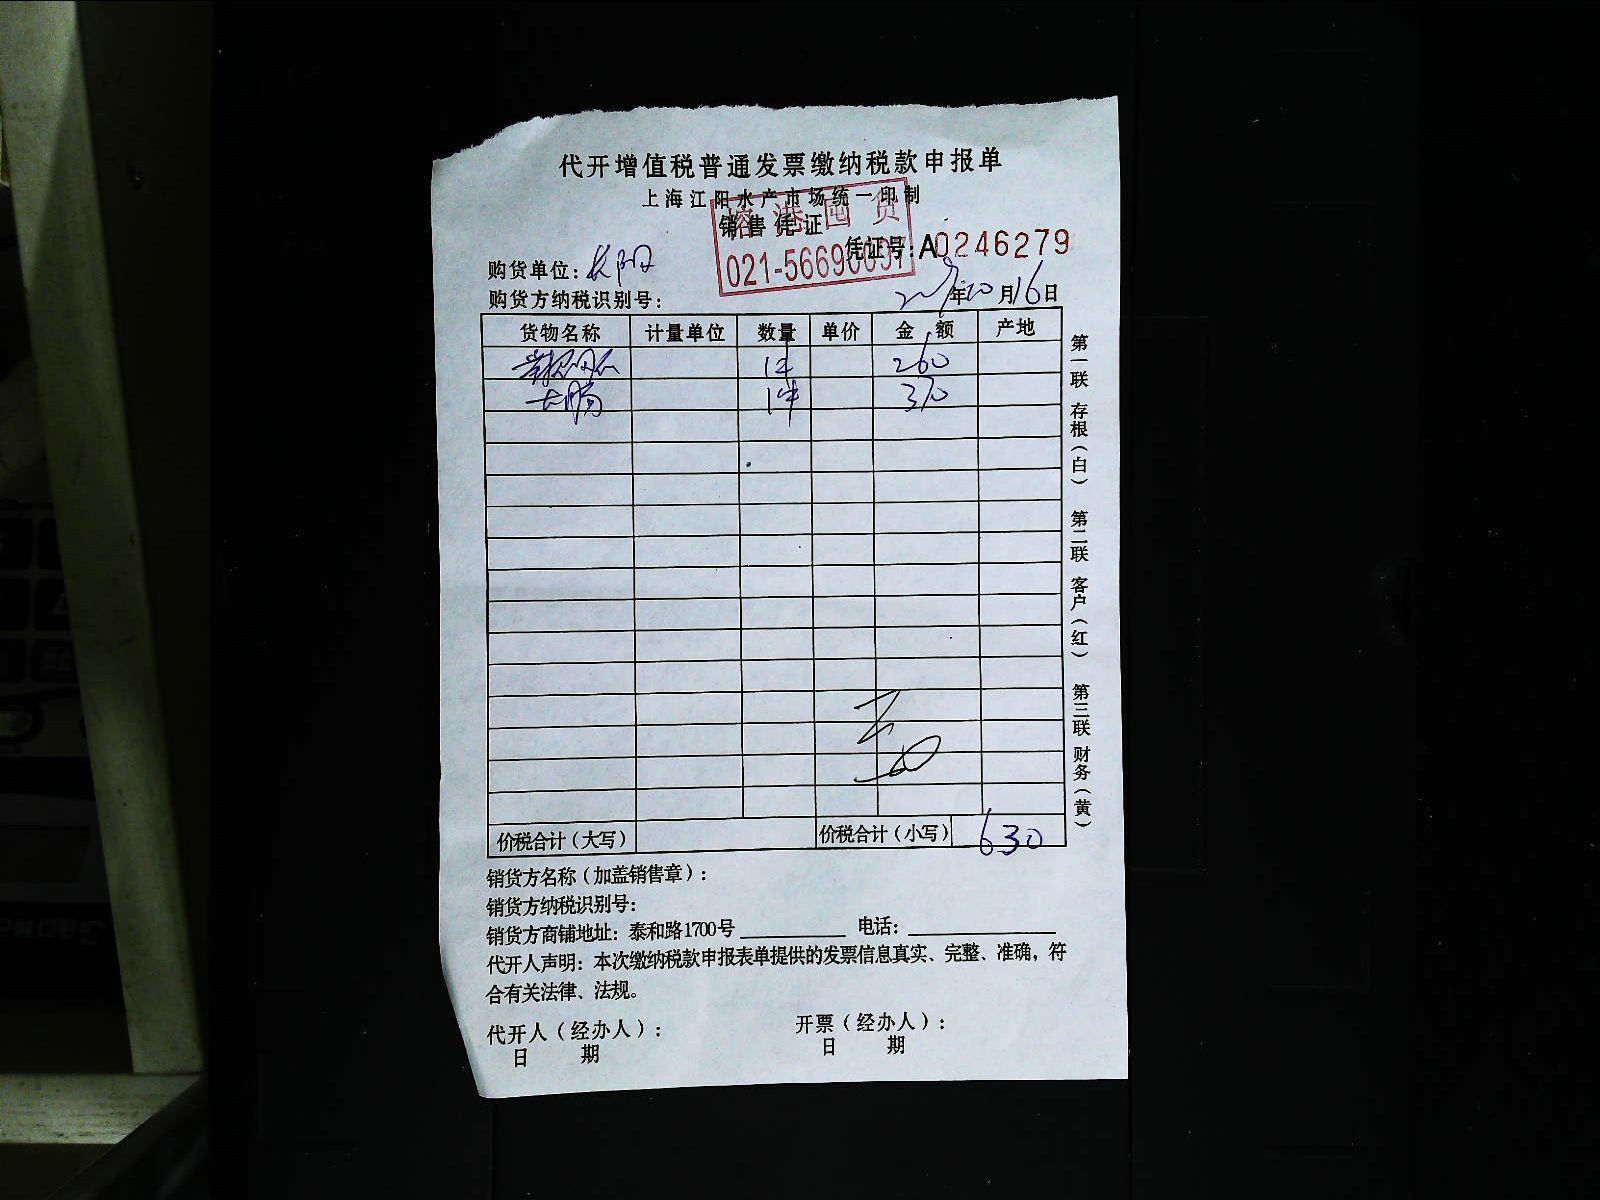 代开增值税普通发票缴纳税款申报单
上海江阳水产市场统一印制
销售凭证
港 囤 货
021-5669
凭证号:A0246279
购货单位: 长阳
购货方纳税识别号:
年10月16日
货物名称 计量单位 数量 单价 金 额 产地
1件 260
大肠 1件 370
价税合计(大写) 价税合计(小写) 630
第一联 存根(白) 第二联 客户(红) 第三联 财务(黄)
销货方名称(加盖销售章):
销货方纳税识别号:
销货方商铺地址: 泰和路1700号 电话:
代开人声明: 本次缴纳税款申报表单提供的发票信息真实、完整、准确, 符
合有关法律、法规。
代开人(经办人): 开票(经办人):
日 期 日 期